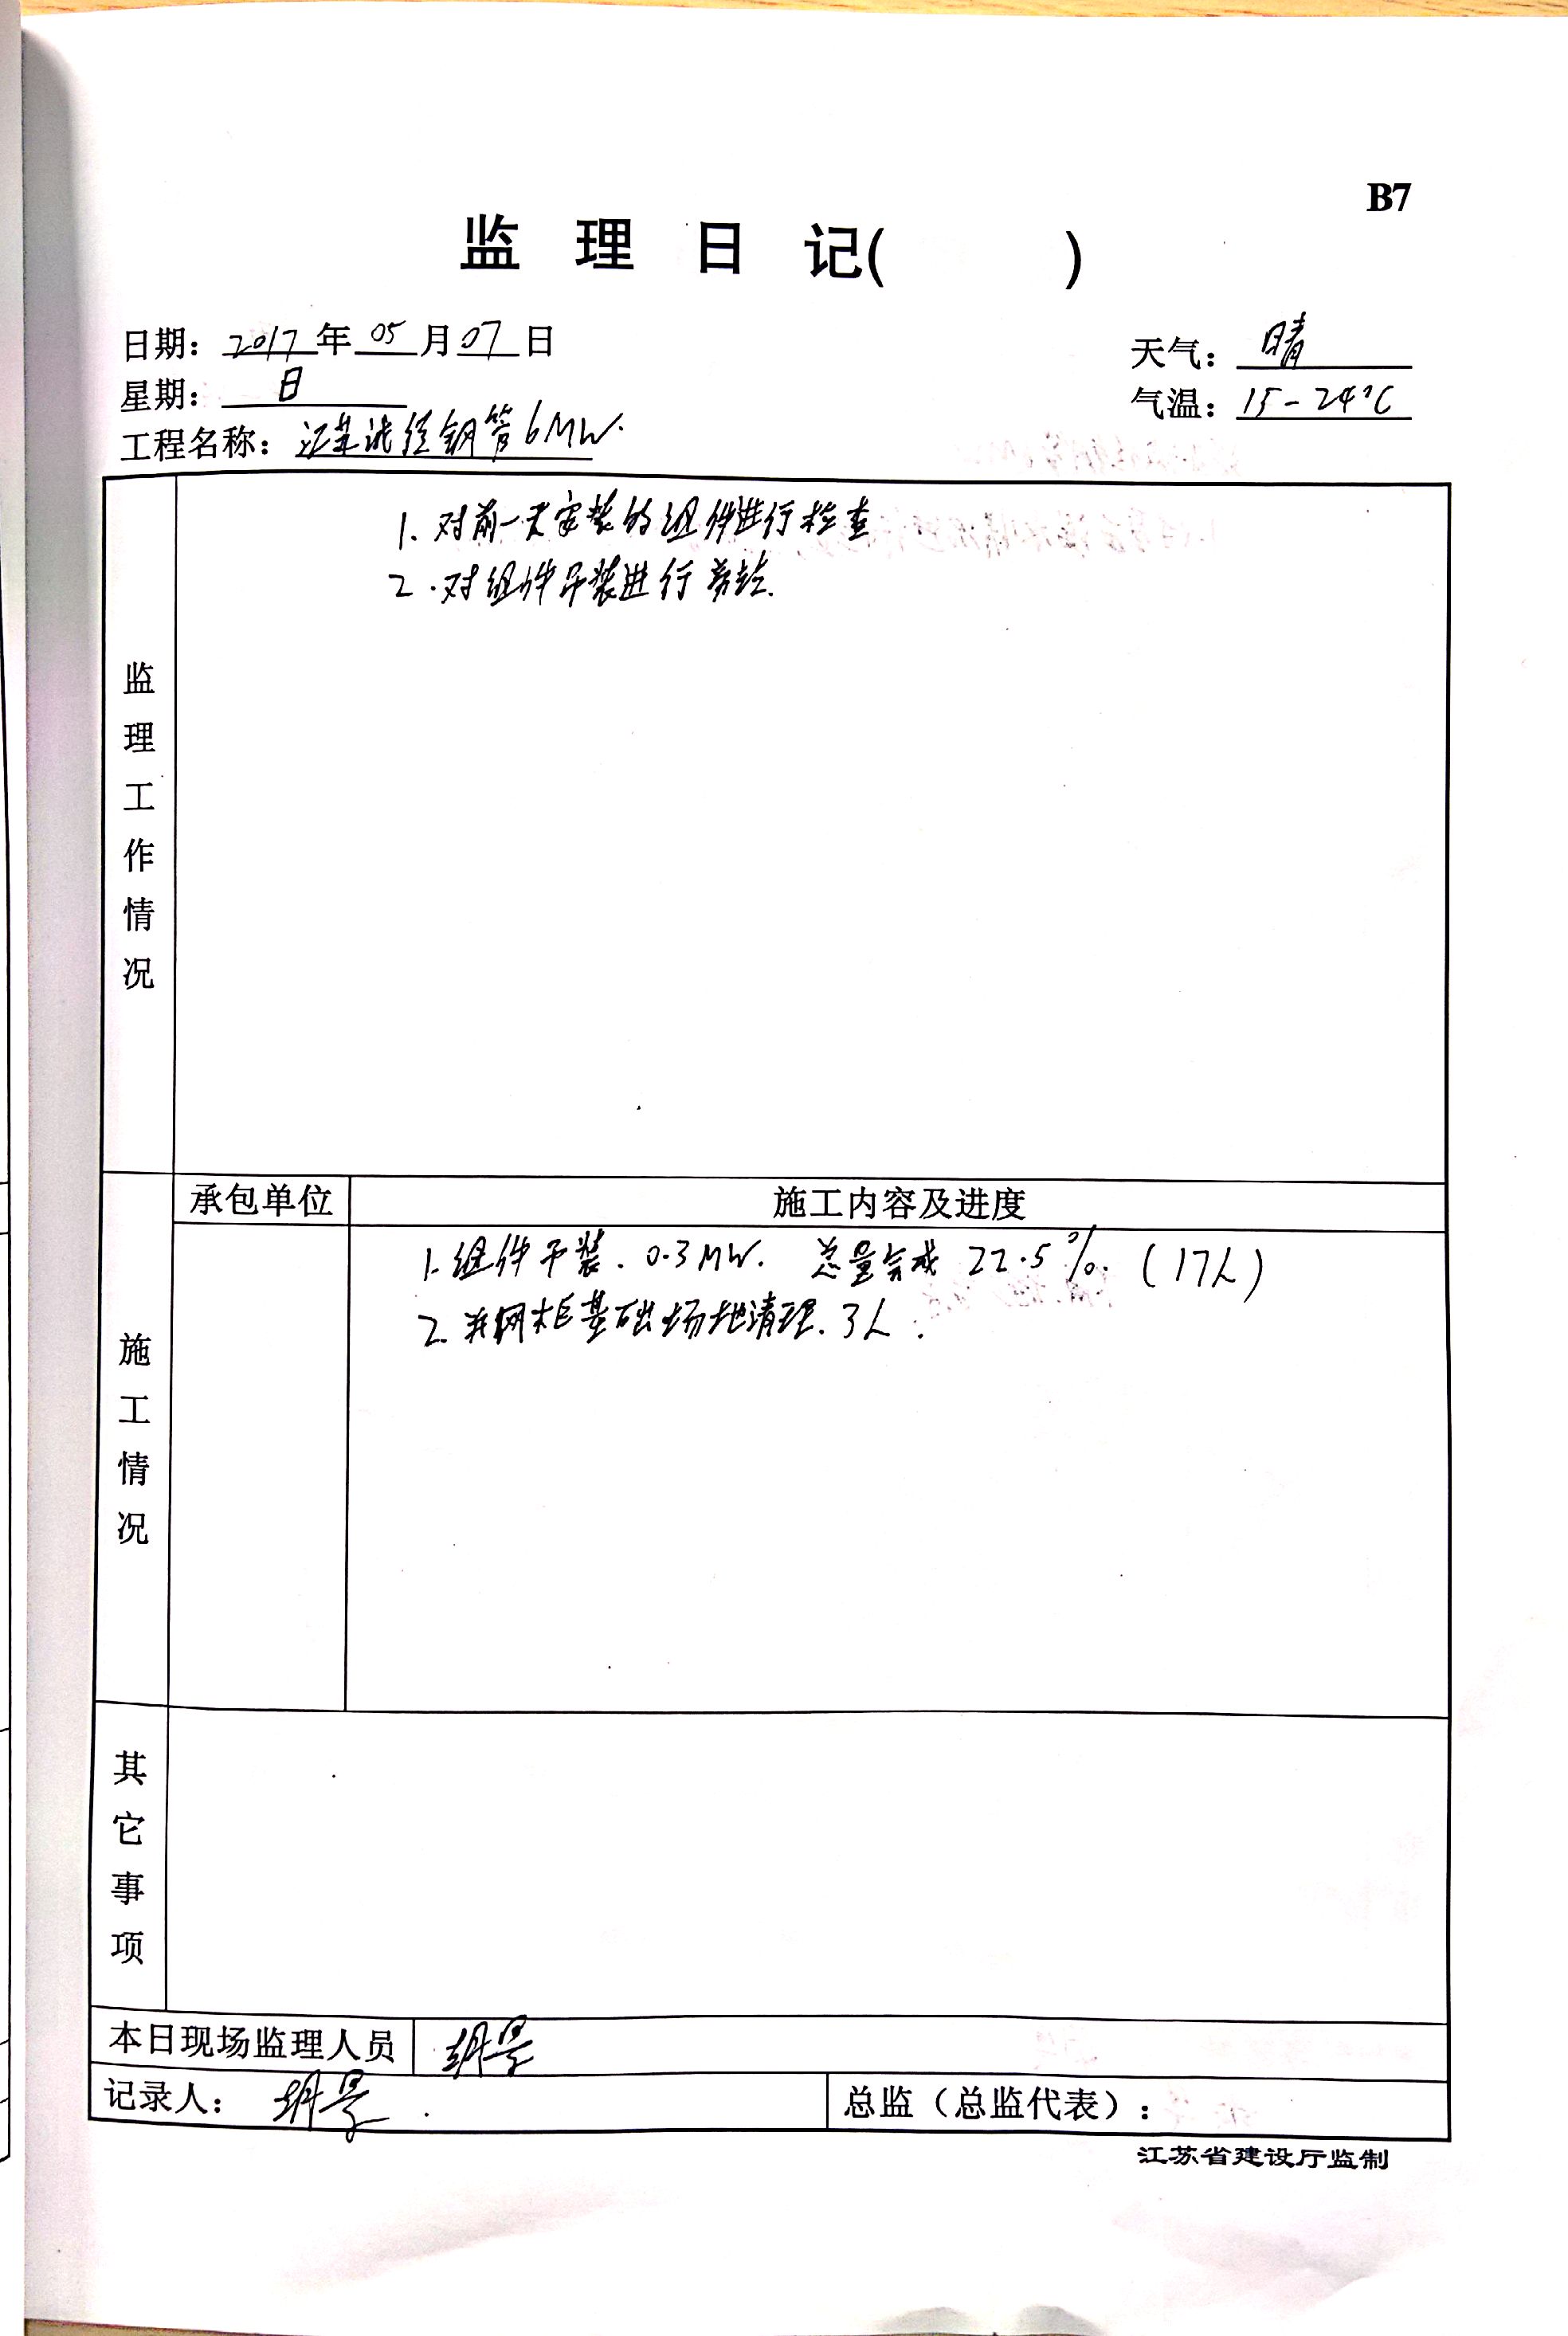 B7
监理日记( )
日期：2017年05月07日
天气：晴
星期：日
气温：15-24℃
工程名称：江苏诚德钢管6MW.
监理工作情况
1. 对前一天安装的组件进行检查
2. 对组件吊装进行旁站.
施工情况
承包单位
施工内容及进度
1. 组件吊装. 0.3MW. 总量完成 22.5%. (17人)
2. 并网柜基础场地清理. 3人.
其它事项
本日现场监理人员
记录人：
总监（总监代表）：
江苏省建设厅监制